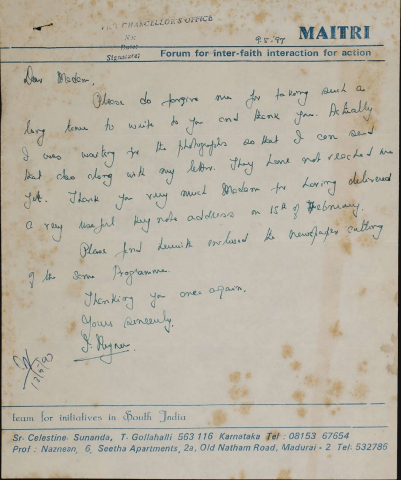 VICE CHANCELLOR'S OFFICE
No.
Date:
Signature:
9.5-97
MAITRI
Forum for inter-faith interaction for action
Dear Madam,
Please do forgive me for taking such a
long time to write to you and thank you. Actually
I was waiting for the photographs so that I can send
that also along with my letter. They have not reached me
yet. Thank you very much Madam for having delivered
a very useful key note address on 15th of February.
Please find herewith enclosed the newspaper cutting
of the same Programme.
Thanking you once again,
Yours sincerely,
team for initiatives in South India
Sr. Celestine. Sunanda, T. Gollahalli 563 116 Karnataka Tel : 08153 67654
Prof : Naznean, 6, Seetha Apartments, 2a, Old Natham Road, Madurai - 2 Tel: 532786